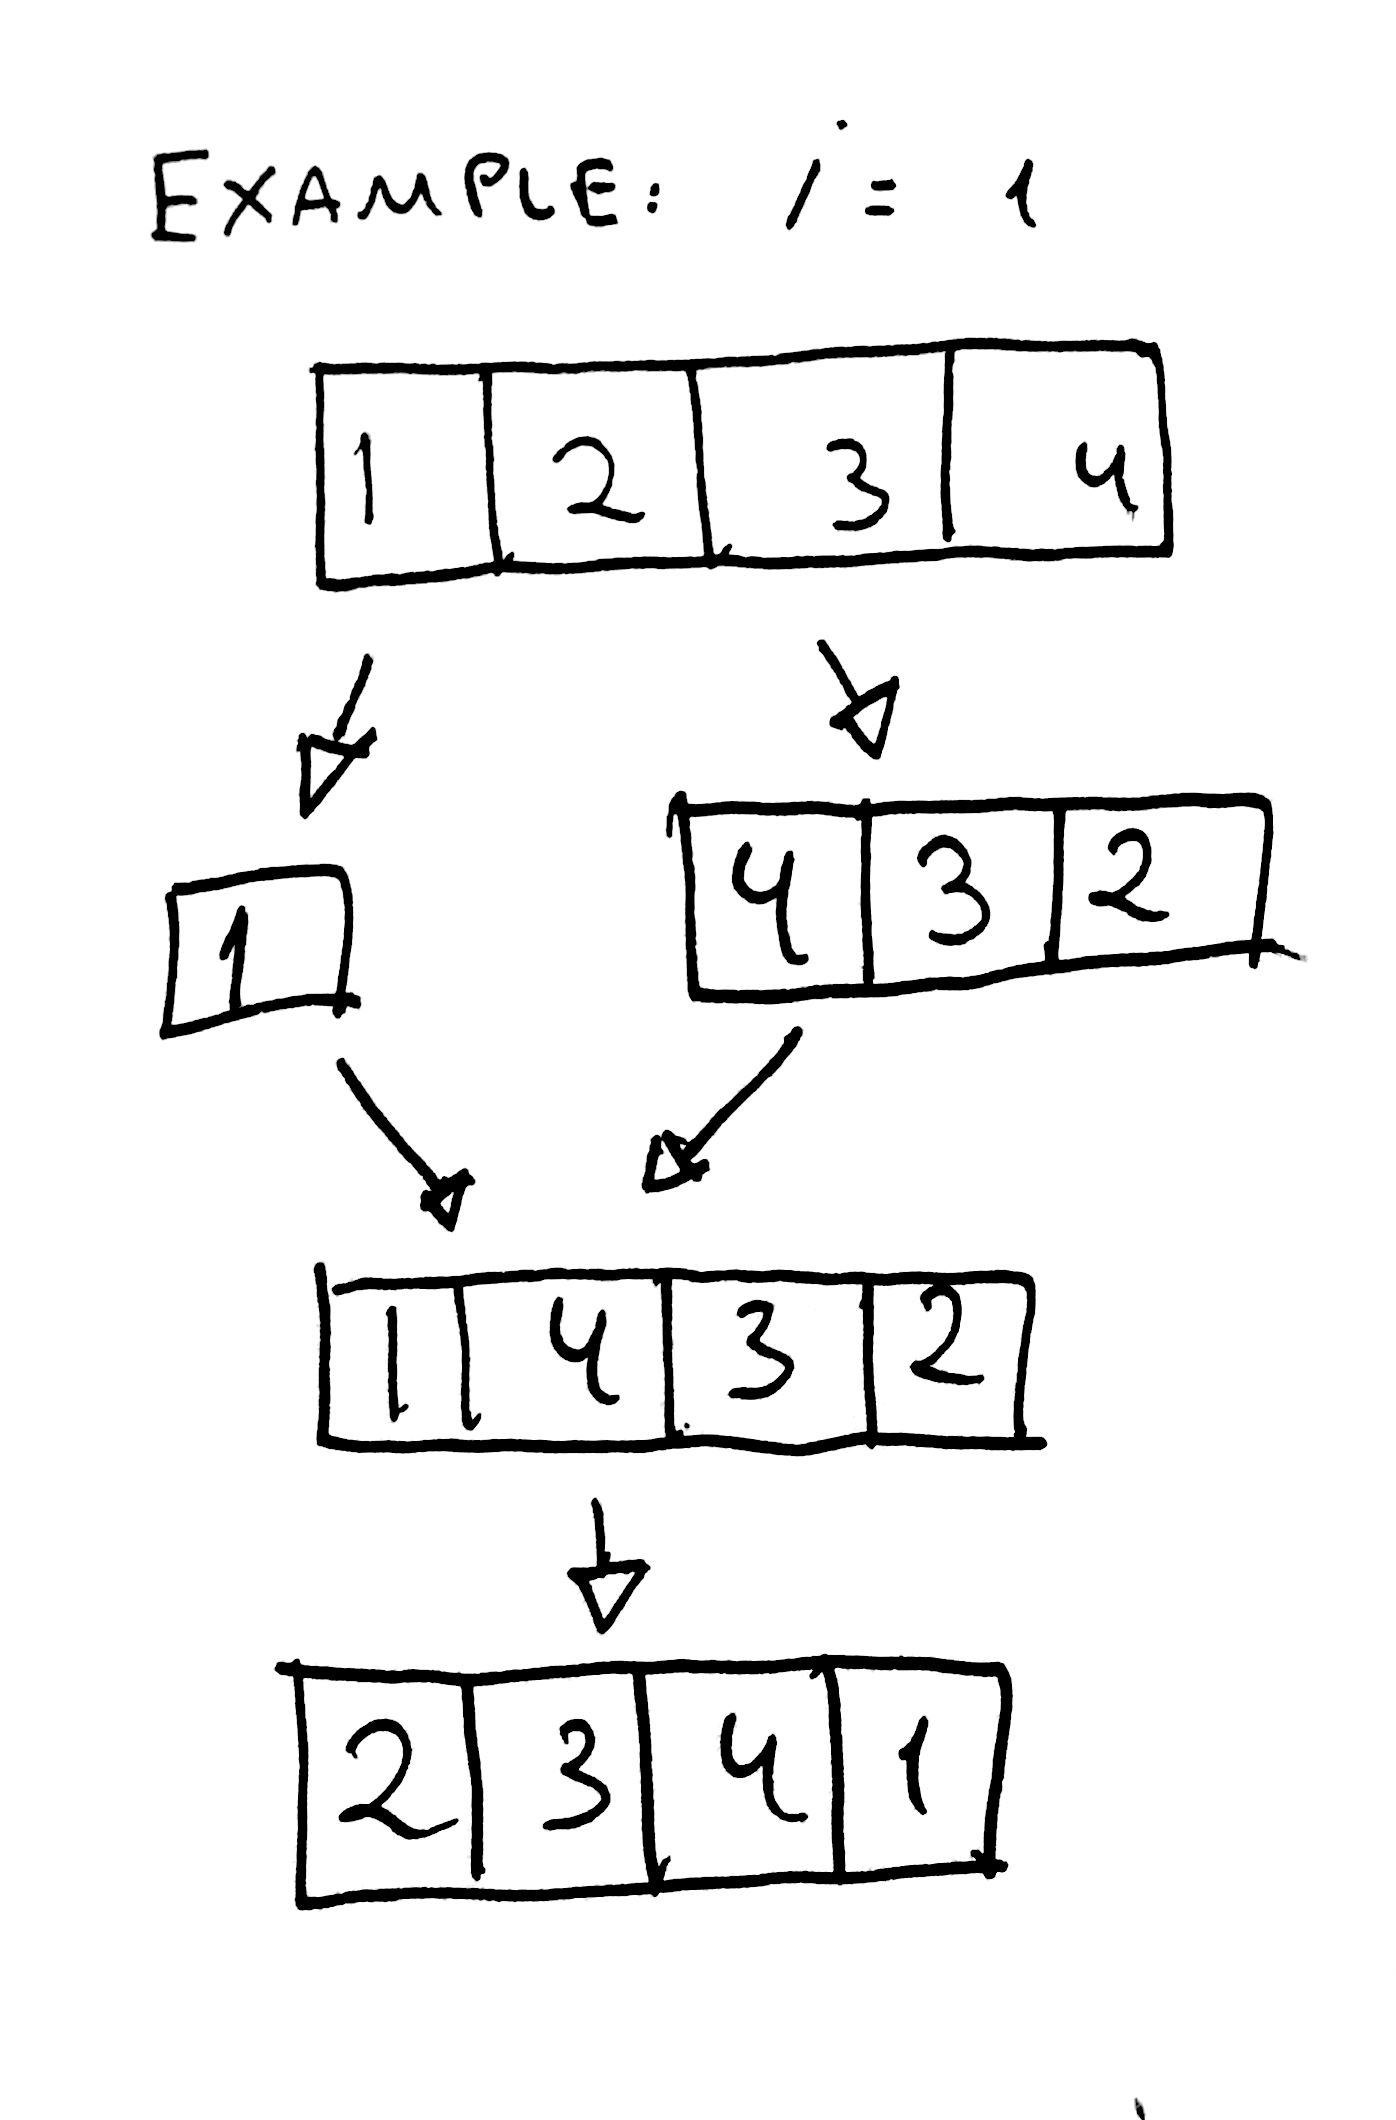 EXAMPLE: i = 1
1 2 3 4
1 4 3 2
1 4 3 2
2 3 4 1